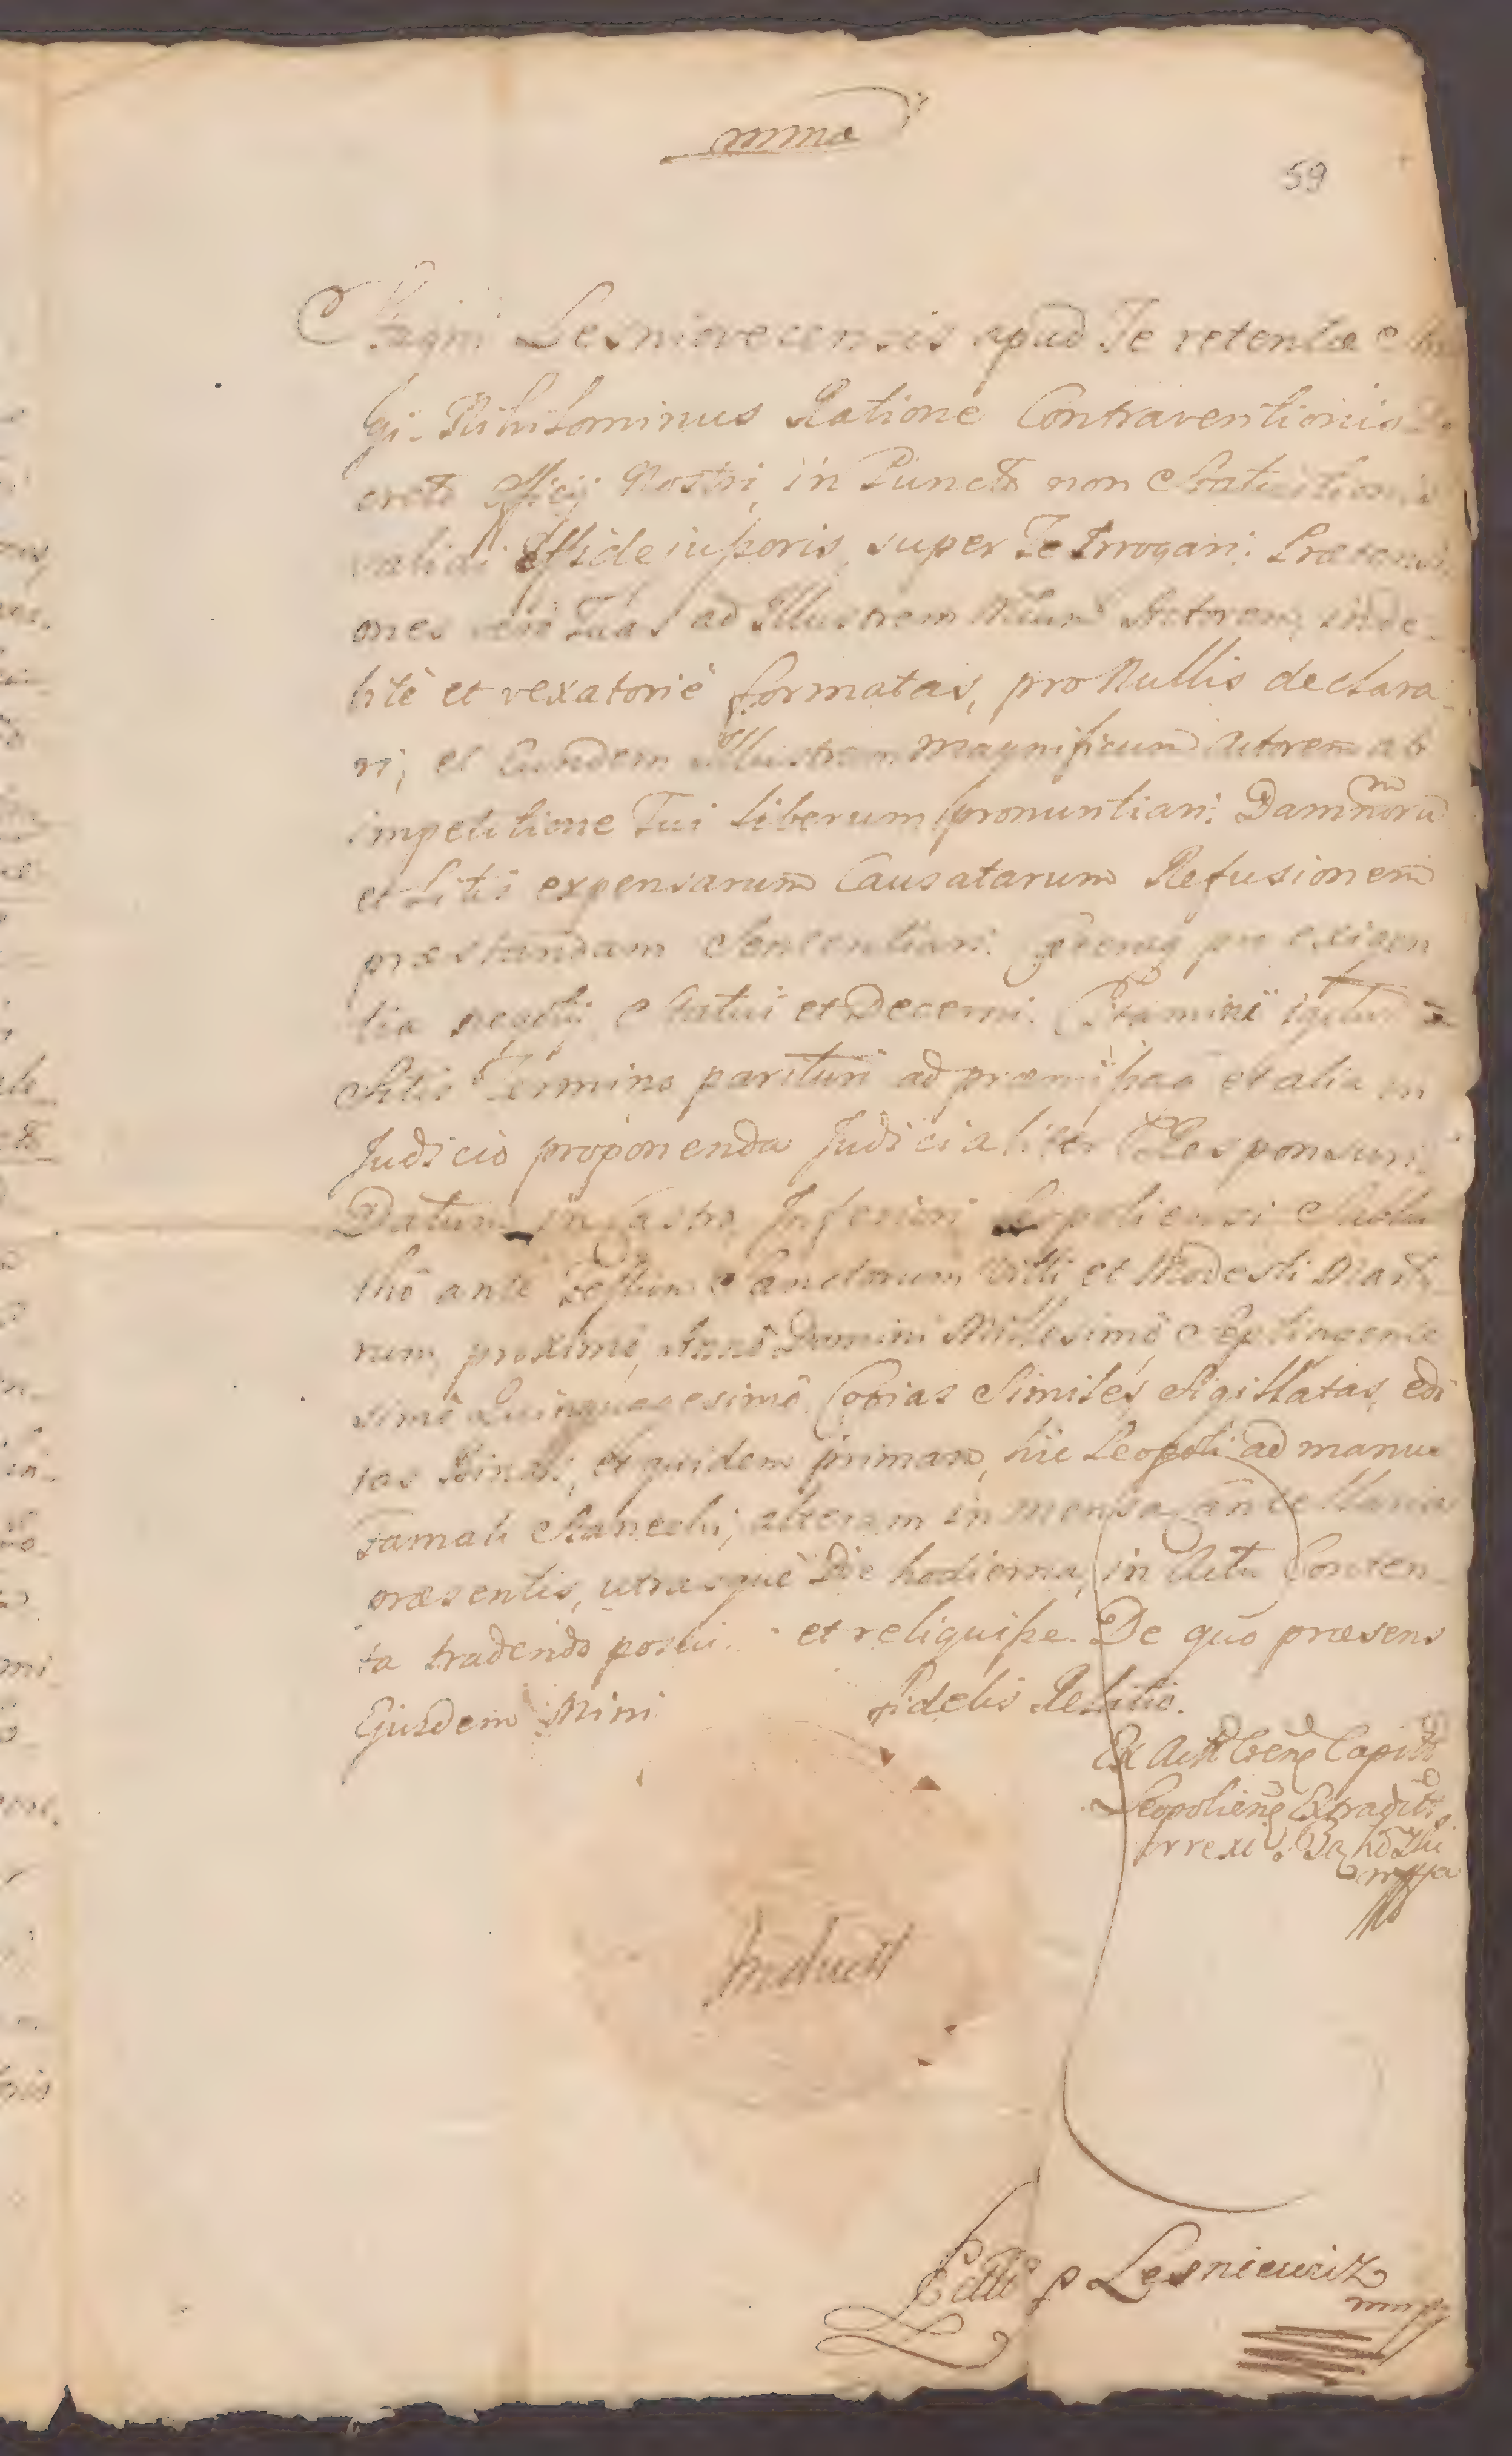 mma
59
Stagni Lesniovecensis apud Te retentae
gi. Nihilominus Ratione Contraventionis De
creti Officij Nostri, in Puncto non Statuitionis
validi Effideiussoris, super Te Irrogari: Praetensi
ones verò Tuas ad Illustrem Mfum Actorem, inde
bitè et vexatoriè formatas, pro Nullis declara
ri, et Eundem Illustrem Magnificum Actorem ab
impetitione Tui liberum pronuntiari: Damnorum
et Litis expensarum Causatarum Refusionem
praestandam Sententiari: pro exigen
tia negotij Statui et Decerni. igitur
Sitis Termino parituri ad praemissa et alia in
Judicio proponenda Judicialiter Responsuri
Datum in Castro Inferiori Leopoliensi Sabba
thô ante Festum Sanctorum Vitti et Modesti Marty
rum, proximô, Annô Domini Millesimô Septingente
simô Quinquagesimô. Copias Similes Sigillatas, edi
tas Binas, et quidem primam, hic Leopoli ad manus
famati alteram in mensa Cancellaria
praesentis, utrasque Die hodierna, in Actu Conten
ta tradendo posui. et reliquisse. De quô praesens
Ejusdem Mini fidelis Relatio.
Ex Actis Capit
Leopolien Extradit
Correxi
mppa
Induct
Lesniewicz
mmp